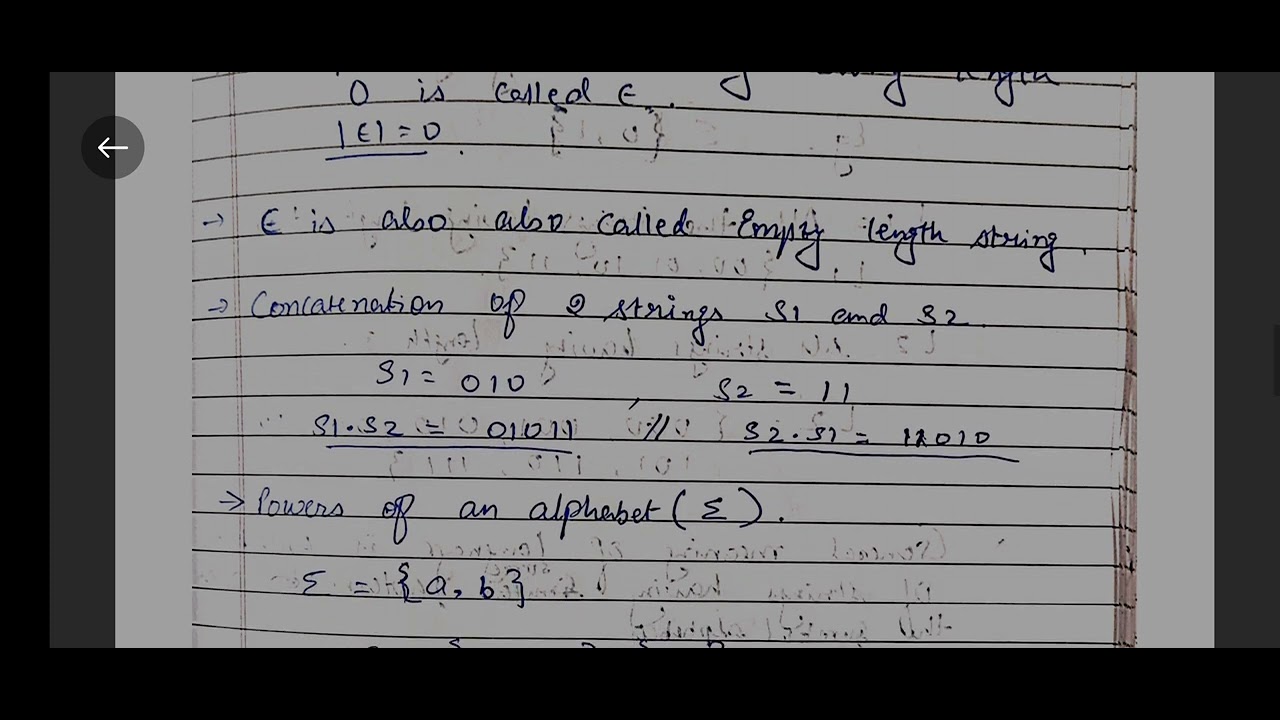 length
0 is called ϵ.
|ϵ| = 0.
→ ϵ is also also called Empty length string.
→ Concatenation of 2 strings S1 and S2.
S1 = 010 , S2 = 11
S1.S2 = 01011 // S2.S1 = 11010
→ Powers of an alphabet (Σ).
Σ = {a, b}